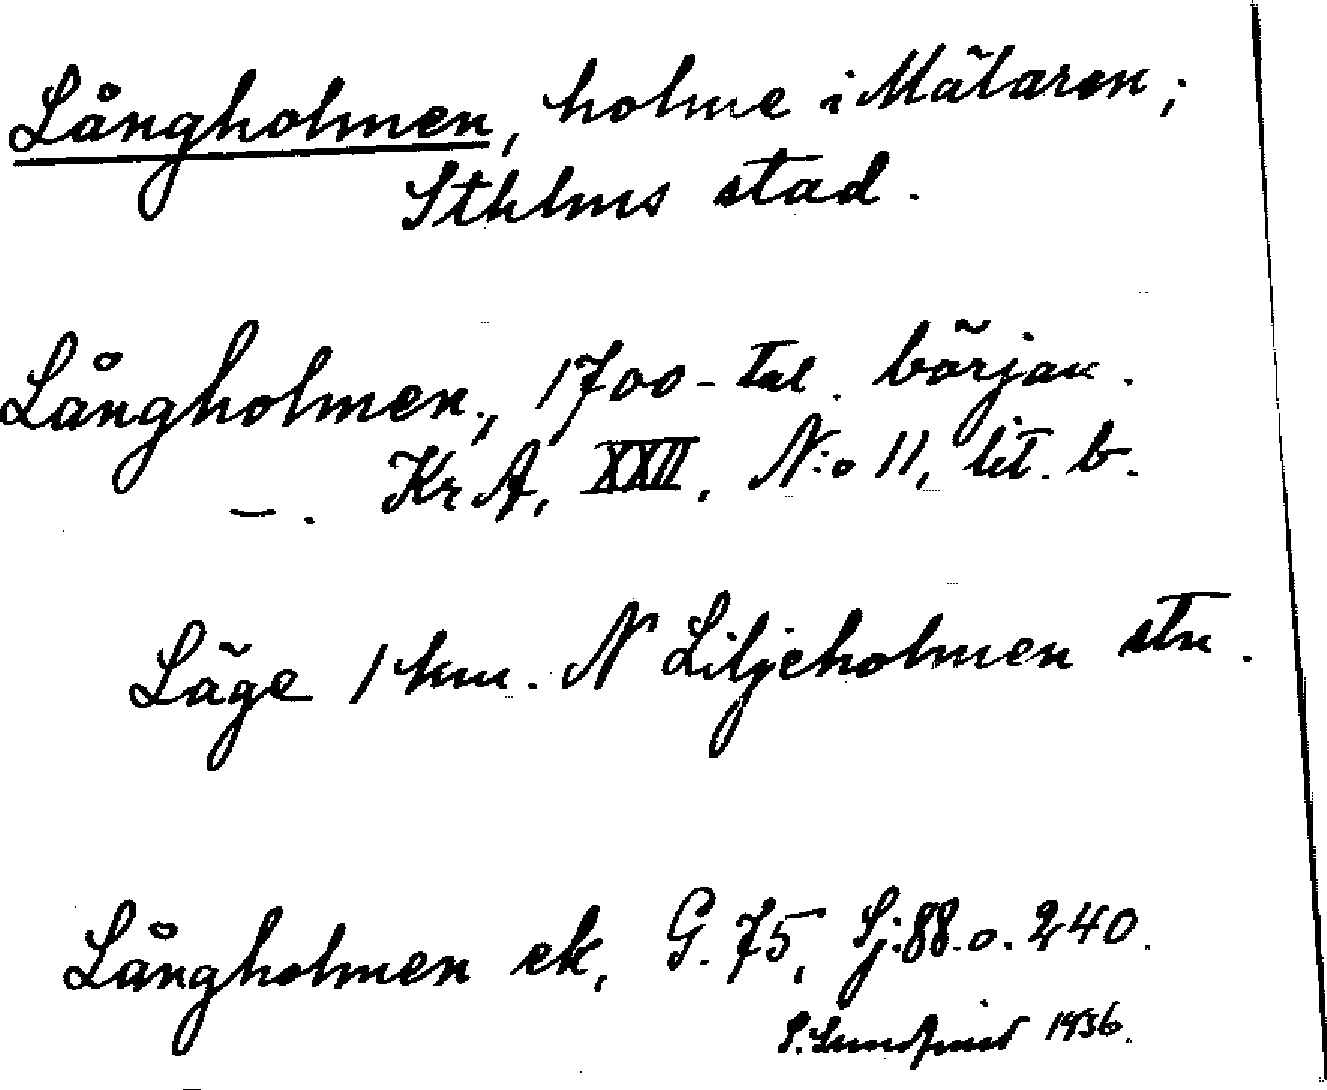 Långholmen, holme i Mälaren;
Sthlms stad.
Långholmen, 1700-tal. början.
—. KrA, XXII, N:o 11, lit. b.
Läge 1 km. N Liljeholmen stn.
Långholmen ek, G. 75, Sj: 88 o. 240.
1936.